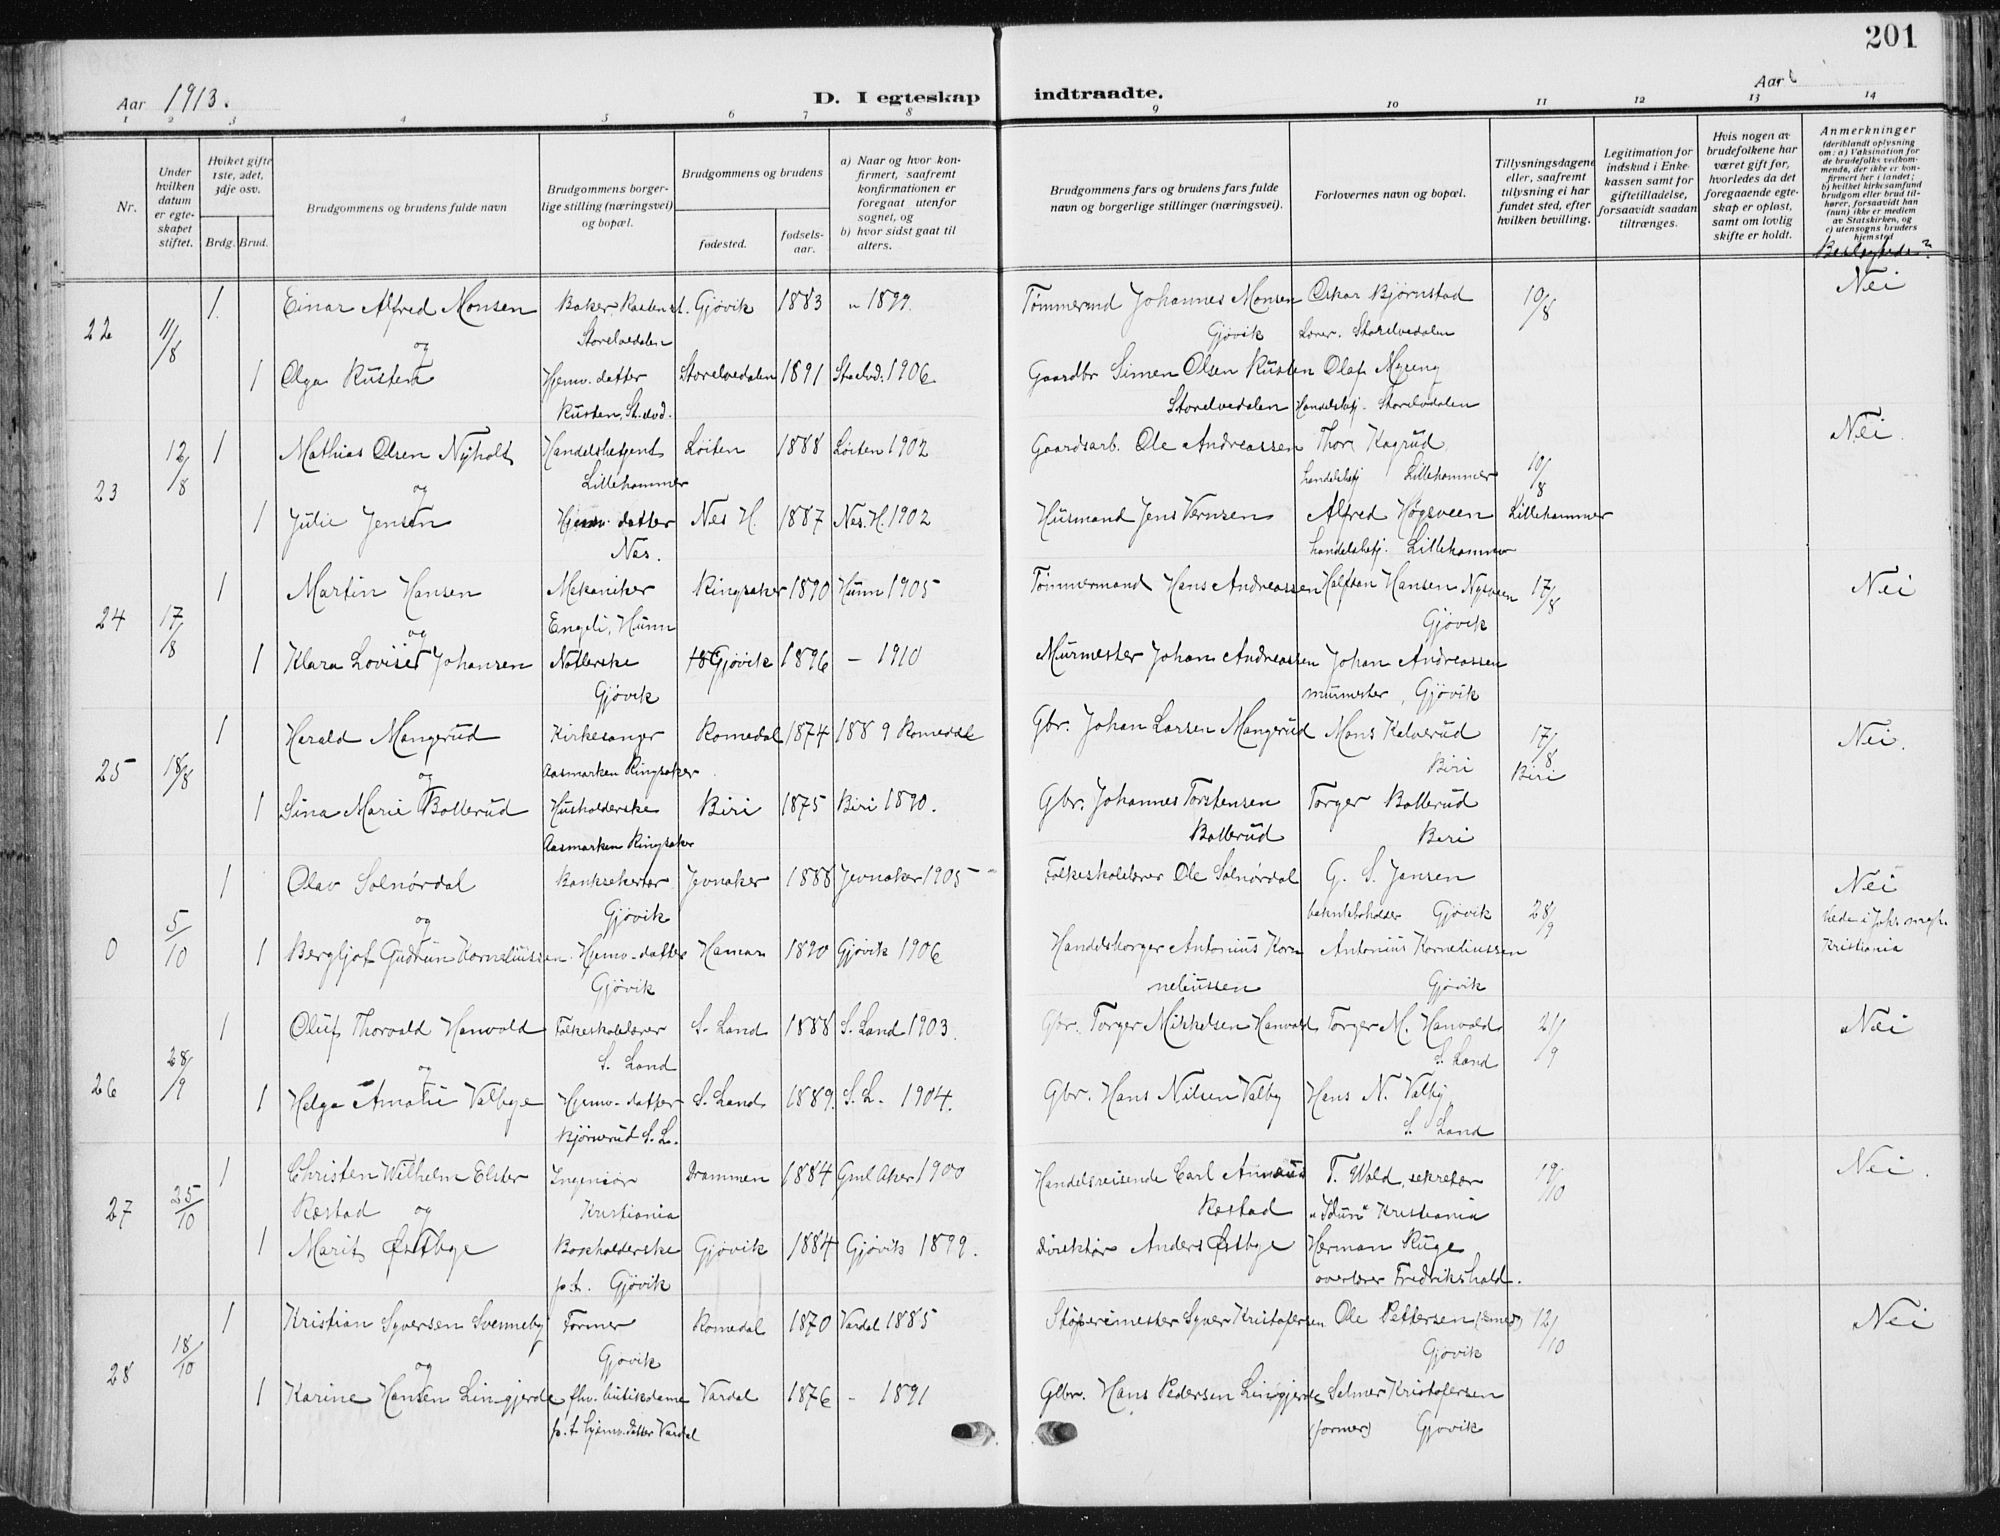 201
Aar 1913.
D. I egteskap indtraadte.
Aar
1 2 3 4 5 6 7 8 9 10 11 12 13 14
Nr.
Under hvilken datum er egteskapet stiftet.
Hvilket gifte 1ste, 2det, 3dje osv.
Brdg. Brud.
Brudgommens og brudens fulde navn
Brudgommens borgerlige stilling (næringsvei) og bopæl.
Brudgommens og brudens
fødested.
fødselsaar.
a) Naar og hvor konfirmert, saafremt konfirmationen er foregaat utenfor sognet, og
b) hvor sidst gaat til alters.
Brudgommens fars og brudens fars fulde navn og borgerlige stillinger (næringsvei).
Forlovernes navn og bopæl.
Tillysningsdagene eller, saafremt tillysning ei har fundet sted, efter hvilken bevilling.
Legitimation for indskud i Enkekassen samt for giftetilladelse, forsaavidt saadan tiltrænges.
Hvis nogen av brudefolkene har været gift før, hvorledes da det foregaaende egteskap er opløst, samt om lovlig skifte er holdt.
Anmerkninger (deriblandt oplysning om: a) Vaksination for de brudefolks vedkommende, der ikke er konfirmert her i landet; b) hvilket kirkesamfund brudgom eller brud tilhører, forsaavidt han (hun) ikke er medlem av Statskirken, og c) utensogns bruders hjemsted
22 11/8 1 Einar Alfred Monsen Baker Gjøvik 1883 " 1899. Tømmermd Johannes Monsen Oskar Bjørnstad 10/8 Nei
Storelvedalen Gjøvik Storelvedalen
og
1 Olga Rusten Hjemv. datter Storelvedalen 1891 Storelvd. 1906 Gaardbr Simen Olsen Rusten Olaf Myreng
Rusten, St.elvd. Storelvedalen Handelsbetj. Storelvdalen
23 12/8 1 Mathias Olsen Nyholt Handelsbetjent Løiten 1888 Løiten 1902 Gaardsarb. Ole Andreassen Thor Hagrud 10/8 Nei.
Lillehammer handelsbetj Lillehammer
og
1 Julie Jensen Hjemv. datter Nes H. 1887 Nes. H. 1902 Husmand Jens Alfred Høgsveen Lillehammer
Nes. handelsbetj. Lillehammer
24 17/8 1 Martin Hansen Mekaniker Ringsaker 1890 Hunn 1905 Tømmermand Hans Andreassen Halfdan Hansen Nysveen 17/8 Nei
Engeli, Hunn Gjøvik
og
1 Klara Lovise Johansen Gjøvik 1896 - 1910 Murmester Johan Andreassen Johan Andreassen
Gjøvik murmester, Gjøvik
25 18/8 1 Harald Mangerud Kirkesanger Romedal 1874 1889 Romedal Gbr. Johan Larsen Mangerud Mons Kelverud 17/8 Nei.
Aasmarken Ringsaker Biri Biri
og
1 Sina Marie Bollerud Husholderske Biri 1875 Biri 1890. Gbr. Johannes Torstensen Torger Bollerud
Aasmarken Ringsaker Bollerud Biri
0 5/10 1 Olav Solnørdal Banksekretær Jevnaker 1888 Jevnaker 1905 Folkeskolelærer Ole Solnørdal G. S. Jansen 28/9 Nei
Gjøvik Gjøvik
og Kristiania
1 Bergljot Gudrun Korneliussen Hjemv-datter Hamar 1890 Gjøvik 1906 Handelsborger Antonius Kor- Antonius Korneliussen
Gjøvik neliussen Gjøvik
26 28/9 1 Oluf Thorvald Hanvold Folkeskolelærer S. Land 1888 S. Land 1903. Gbr. Torger Mikkelsen Hanvold Torger M. Hanvold 21/9 Nei
S. Land S. Land
og
1 Helga Amalie Valbye Hjemv-datter S. Land 1889. S. L. 1904. Gbr. Hans Nilsen Valby Hans N. Valby
Bjørnerud S. L. S. Land
27 25/10 1 Christen Wilhelm Elster Ingeniør Drammen 1884 Gml Aker 1900 Handelsreisende Carl T. Wold, sekretær 19/10 Nei.
Rostad Kristiania Rostad "Idun" Kristiania
og
1 Marit Østbye Boxholderske Gjøvik 1884 Gjøvik 1899. Direktør Anders Østbye Herman Ruge
p.t. Gjøvik overlærer Fredrikshald.
28 18/10 1 Kristian Syversen Svenneby Former Romedal 1870 Vardal 1885 Støperimester Syver Kristofersen Ole Pettersen (smed) 12/10 Nei
Gjøvik Gjøvik
og
1 Karine Hansen Lingjerde fhv. butikdame Vardal 1876 - 1891 Glbr. Hans Pedersen Lingjerde Selmer Kristofersen
p.t. hjemv. datter Vardal (former) Gjøvik